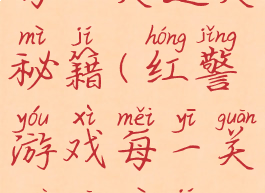 mì jí hóng jǐng
秘籍(红警
yóu xì měi yī guān
游戏每一关